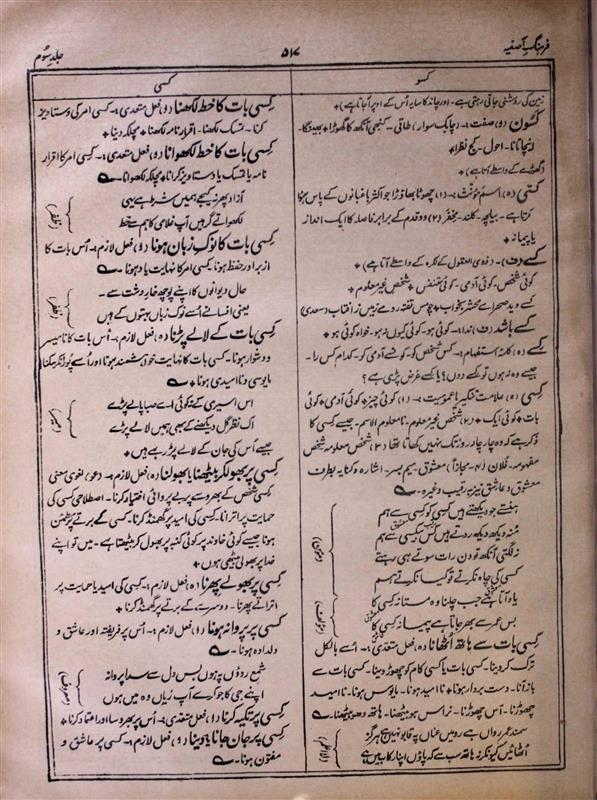 فرہنگِ آصفیہ
۵۱۷
جلد سوم
کسو
کسی
زمین کی روشنی جاتی رہتی ہے۔ اور چاند کا سایہ اُس کے اوپر آجاتا ہے)+
کسون (و) صفت۔ (چابک سوار) طاقی۔ کنجی آنکھ کا گھوڑا + بھینگا۔
اینچا تانا۔ احول۔ کج نظر+
(گھوڑے کے واسطے آتا ہے)
کسّی (ہ) اسم مونّث:۔ (۱) چھوٹا پھاؤڑا جو اکثر باغبانوں کے پاس ہوا
کرتا ہے۔ بیلچہ۔ کلند۔ (۲) دو قدم کے برابر فاصلہ کا ایک انداز
یا پیمانہ +
کسے (ف)۔ (ذوی العقول کے نکرہ کے واسطے آتا ہے)
کوئی شخص۔ کوئی آدمی۔ کوئی متنفس + شخص غیر معلوم +
کسے دید صحرائے محشر بخواب + چو مس تفتہ روئے زمین ز آفتاب (سعدی)
کسے باشد (ف) ندا:۔ کوئی ہو۔ کوئی کیوں نہ ہو۔ خواہ کوئی ہو +
کسے (ہ) کلمۂ استفہام:۔ کس شخص کو۔ کون سے آدمی کو۔ کدام کس را۔
جیسے وہ نہ ہوں تو کسے دوں؟ یا کسے غرض پڑی ہے؟
کسی (ہ) علامت تنکیر یا عمومیت:۔ (۱) کوئی چیز + کوئی آدمی + کوئی
بات + کوئی ایک + (۲) شخص غیر معلوم۔ نامعلوم الاسم۔ جیسے کسی کا
ذکر ہے کہ وہ چار چار روز تک نہیں کھاتا تھا (۳) شخص معلومہ شخص
مفہومہ۔ فلان (۴۔ مجازاً) معشوق۔ اشارہ و کنایہ بطرف
معشوق و عاشق نیز بہ رقیب وغیرہ۔
ہنستے جو دیکھتے ہیں کسی کو کسی سے ہم
مُنہ دیکھ دیکھ روتے ہیں کس بیکسی سے ہم
نہ لگتی آنکھ تو دن رات سوتے ہی رہتے
کسی کی چاہ نکرتے تو کیا نکرتے ہم
یاد آتا ہے جب چلنا وہ مستانہ کسی کا
بس عمر سے بھر جاتا ہے پیمانہ کسی کا
کسی بات سے ہاتھ اُٹھانا (ہ) فعل متعدی:۔ اسے بالکل
ترک کر دینا۔ کسی بات یا کسی کام کو چھوڑ دینا۔ کسی بات سے
باز آنا۔ دست بردار ہونا + نا امید ہونا۔ مایوس ہونا۔ نا امید
چھوڑنا۔ آس چھوڑنا۔ نراس ہو بیٹھنا۔ ہاتھ دھو بیٹھنا۔
سمندِ عمر رواں ہے رو میں عناں پہ قابو نہیں ہے ہرگز
اُٹھائیں کیونکر نہ ہاتھ سب سے کہ پاؤں اپنا رکاب میں ہے
کسی بات کا خط لکھنا (و) فعل متعدی:۔ کسی امر کی دستاویز
کرنا۔ تمسک لکھنا۔ اقرار نامہ لکھنا + مچلکہ دینا +
کسی بات کا خط لکھوانا (و) فعل متعدی:۔ کسی امر کا اقرار
نامہ یا تمسک یا دستاویز کرانا + مچلکہ لکھوانا۔
آزاد پھر نہ کیجے ہمیں شرط ہے یہی
لکھواتے گر ہیں آپ غلامی کا ہم سے خط
(ظفر)
کسی بات کا نوکِ زبان ہونا (و) فعل لازم:۔ اُس بات کا
ازبر اور حفظ ہونا۔ کسی امر کا نہایت یاد ہونا۔
حال دیوانوں کا اپنے پوچھ خارِ دشت سے
یعنی افسانے اُسے نوکِ زباں بہتوں کے ہیں
(ظفر)
کسی بات کے لالے پڑنا (و) فعل لازم:۔ اُس بات کا نا میسر
و دشوار ہونا۔ کسی بات کا نہایت خواہشمند ہونا اور اُسے پورا نہ کر سکنا
مایوسی و نا امیدی ہونا۔
اس اسیری کے نہ کوئی اے صبا پالے پڑے
اک نظر گل دیکھنے کے بھی ہمیں لالے پڑے
جیسے اُس کی جان کے لالے پڑ رہے ہیں +
کسی پر پھول کر بیٹھنا یا پھولنا (ہ) فعل لازم:۔ (عو) لغوی معنی
کسی شخص کے بھروسے پر بے پروائی اختیار کرنا۔ اصطلاحی کسی کی
حمایت پر اترانا۔ کسی کی امید پر گھمنڈ کرنا۔ کسی کے برتے پر
ہونا جیسے کوئی خاوند پر کوئی کنبہ پر پھول کر بیٹھتا ہے۔ میں تو اپنے
خدا پر پھولی بیٹھی ہوں +
کسی پر پھولے پھرنا (ہ) فعل لازم:۔ کسی کی امید یا حمایت پر
اترائے پھرنا۔ دوسرے کے برتے پر گھمنڈ کرنا +
کسی پر پروانہ ہونا (و) فعل لازم:۔ اُس پر فریفتہ اور عاشق و
دلدادہ ہونا۔
شمع روؤں پہ ہوں بس دل سے سدا پروانہ
اپنے جی کا جو کرے آپ زیاں وہ میں ہوں
کسی پر تکیہ کرنا (و) فعل متعدی:۔ اُس پر بھروسا اور اعتماد کرنا +
کسی پر جان جانا یا دینا (و) فعل لازم:۔ کسی پر عاشق و
مفتون ہونا۔